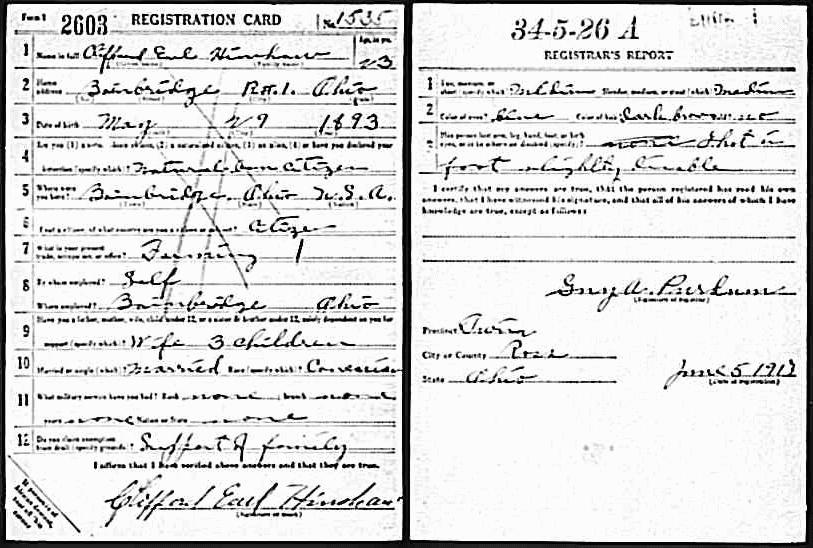 Form 1 2603 REGISTRATION CARD No. 1535
1 Name in full Clifford Earl Hinshaw Age, in yrs. 23
2 Home address Bainbridge R#1. Ohio
3 Date of birth May 29 1893
4 Are you (1) a natural-born citizen, (2) a naturalized citizen, (3) an alien, (4) or have you declared your
intention (specify which)? Natural born citizen
5 Where were you born? Bainbridge Ohio U.S.A.
6 If not a citizen, of what country are you a citizen or subject? Citizen
7 What is your present trade, occupation, or office? Farming
8 By whom employed? Self
Where employed? Bainbridge Ohio
9 Have you a father, mother, wife, child under 12, or a sister or brother under 12, solely dependent on you for
support (specify which)? Wife 3 children
10 Married or single (which)? Married Race (specify which)? Caucasian
11 What military service have you had? Rank none branch none
years none Nation or State none
12 Do you claim exemption from draft (specify grounds)? Support of family
I affirm that I have verified above answers and that they are true.
Clifford Earl Hinshaw
(Signature or mark)
34-5-26 A
REGISTRAR'S REPORT
1 Tall, medium, or short (specify which)? Medium Slender, medium, or stout (which)? Medium
2 Color of eyes? blue Color of hair? dark brown Bald? no
3 Has person lost arm, leg, hand, foot, or both eyes, or is he otherwise disabled (specify)? none Shot in
foot slightly disable
I certify that my answers are true, that the person registered has read his own
answers, that I have witnessed his signature, and that all of his answers of which I have
knowledge are true, except as follows:
Guy A. Purdum
(Signature of registrar)
Precinct Twin
City or County Ross
State Ohio June 5 1917
(Date of registration)